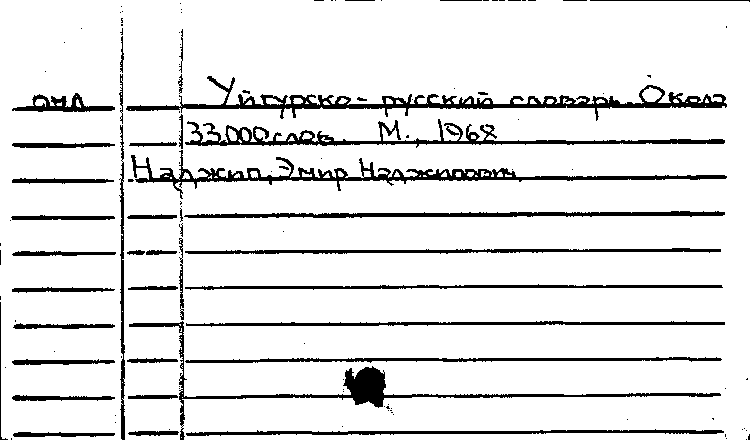 Уйгурско-русский словарь. Около
33.000 слов. М., 1968
Наджип, Эмир Наджипович